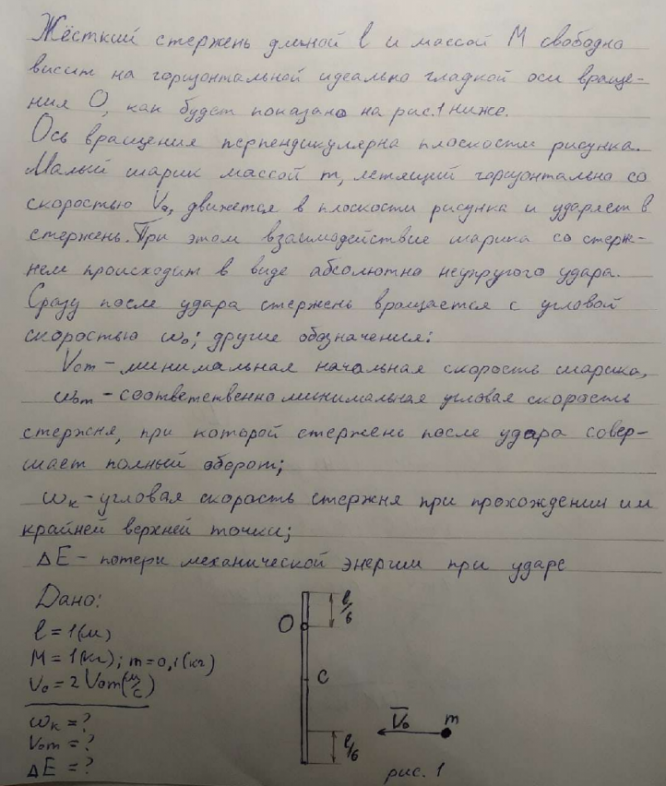 Жёсткий стержень длиной l и массой M свободно
висит на горизонтальной идеально гладкой оси враще-
ния O, как будет показано на рис.1 ниже.
Ось вращения перпендикулярна плоскости рисунка.
Малый шарик массой m, летящий горизонтально со
скоростью V₀, движется в плоскости рисунка и ударяет в
стержень. При этом взаимодействие шарика со стерж-
нем происходит в виде абсолютно неупругого удара.
Сразу после удара стержень вращается с угловой
скоростью ω₀; другие обозначения:
V₀m – минимальная начальная скорость шарика,
ω₀m – соответственно минимальная угловая скорость
стержня, при которой стержень после удара совер-
шает полный оборот;
ωк – угловая скорость стержня при прохождении им
крайней верхней точки;
ΔE – потери механической энергии при ударе
Дано:
l = 1(м)
M = 1(кг); m = 0,1(кг)
V₀ = 2 V₀m(м/с)
ωк = ?
V₀m = ?
ΔE = ?
O
l/6
C
l/6
V̅₀
m
рис. 1